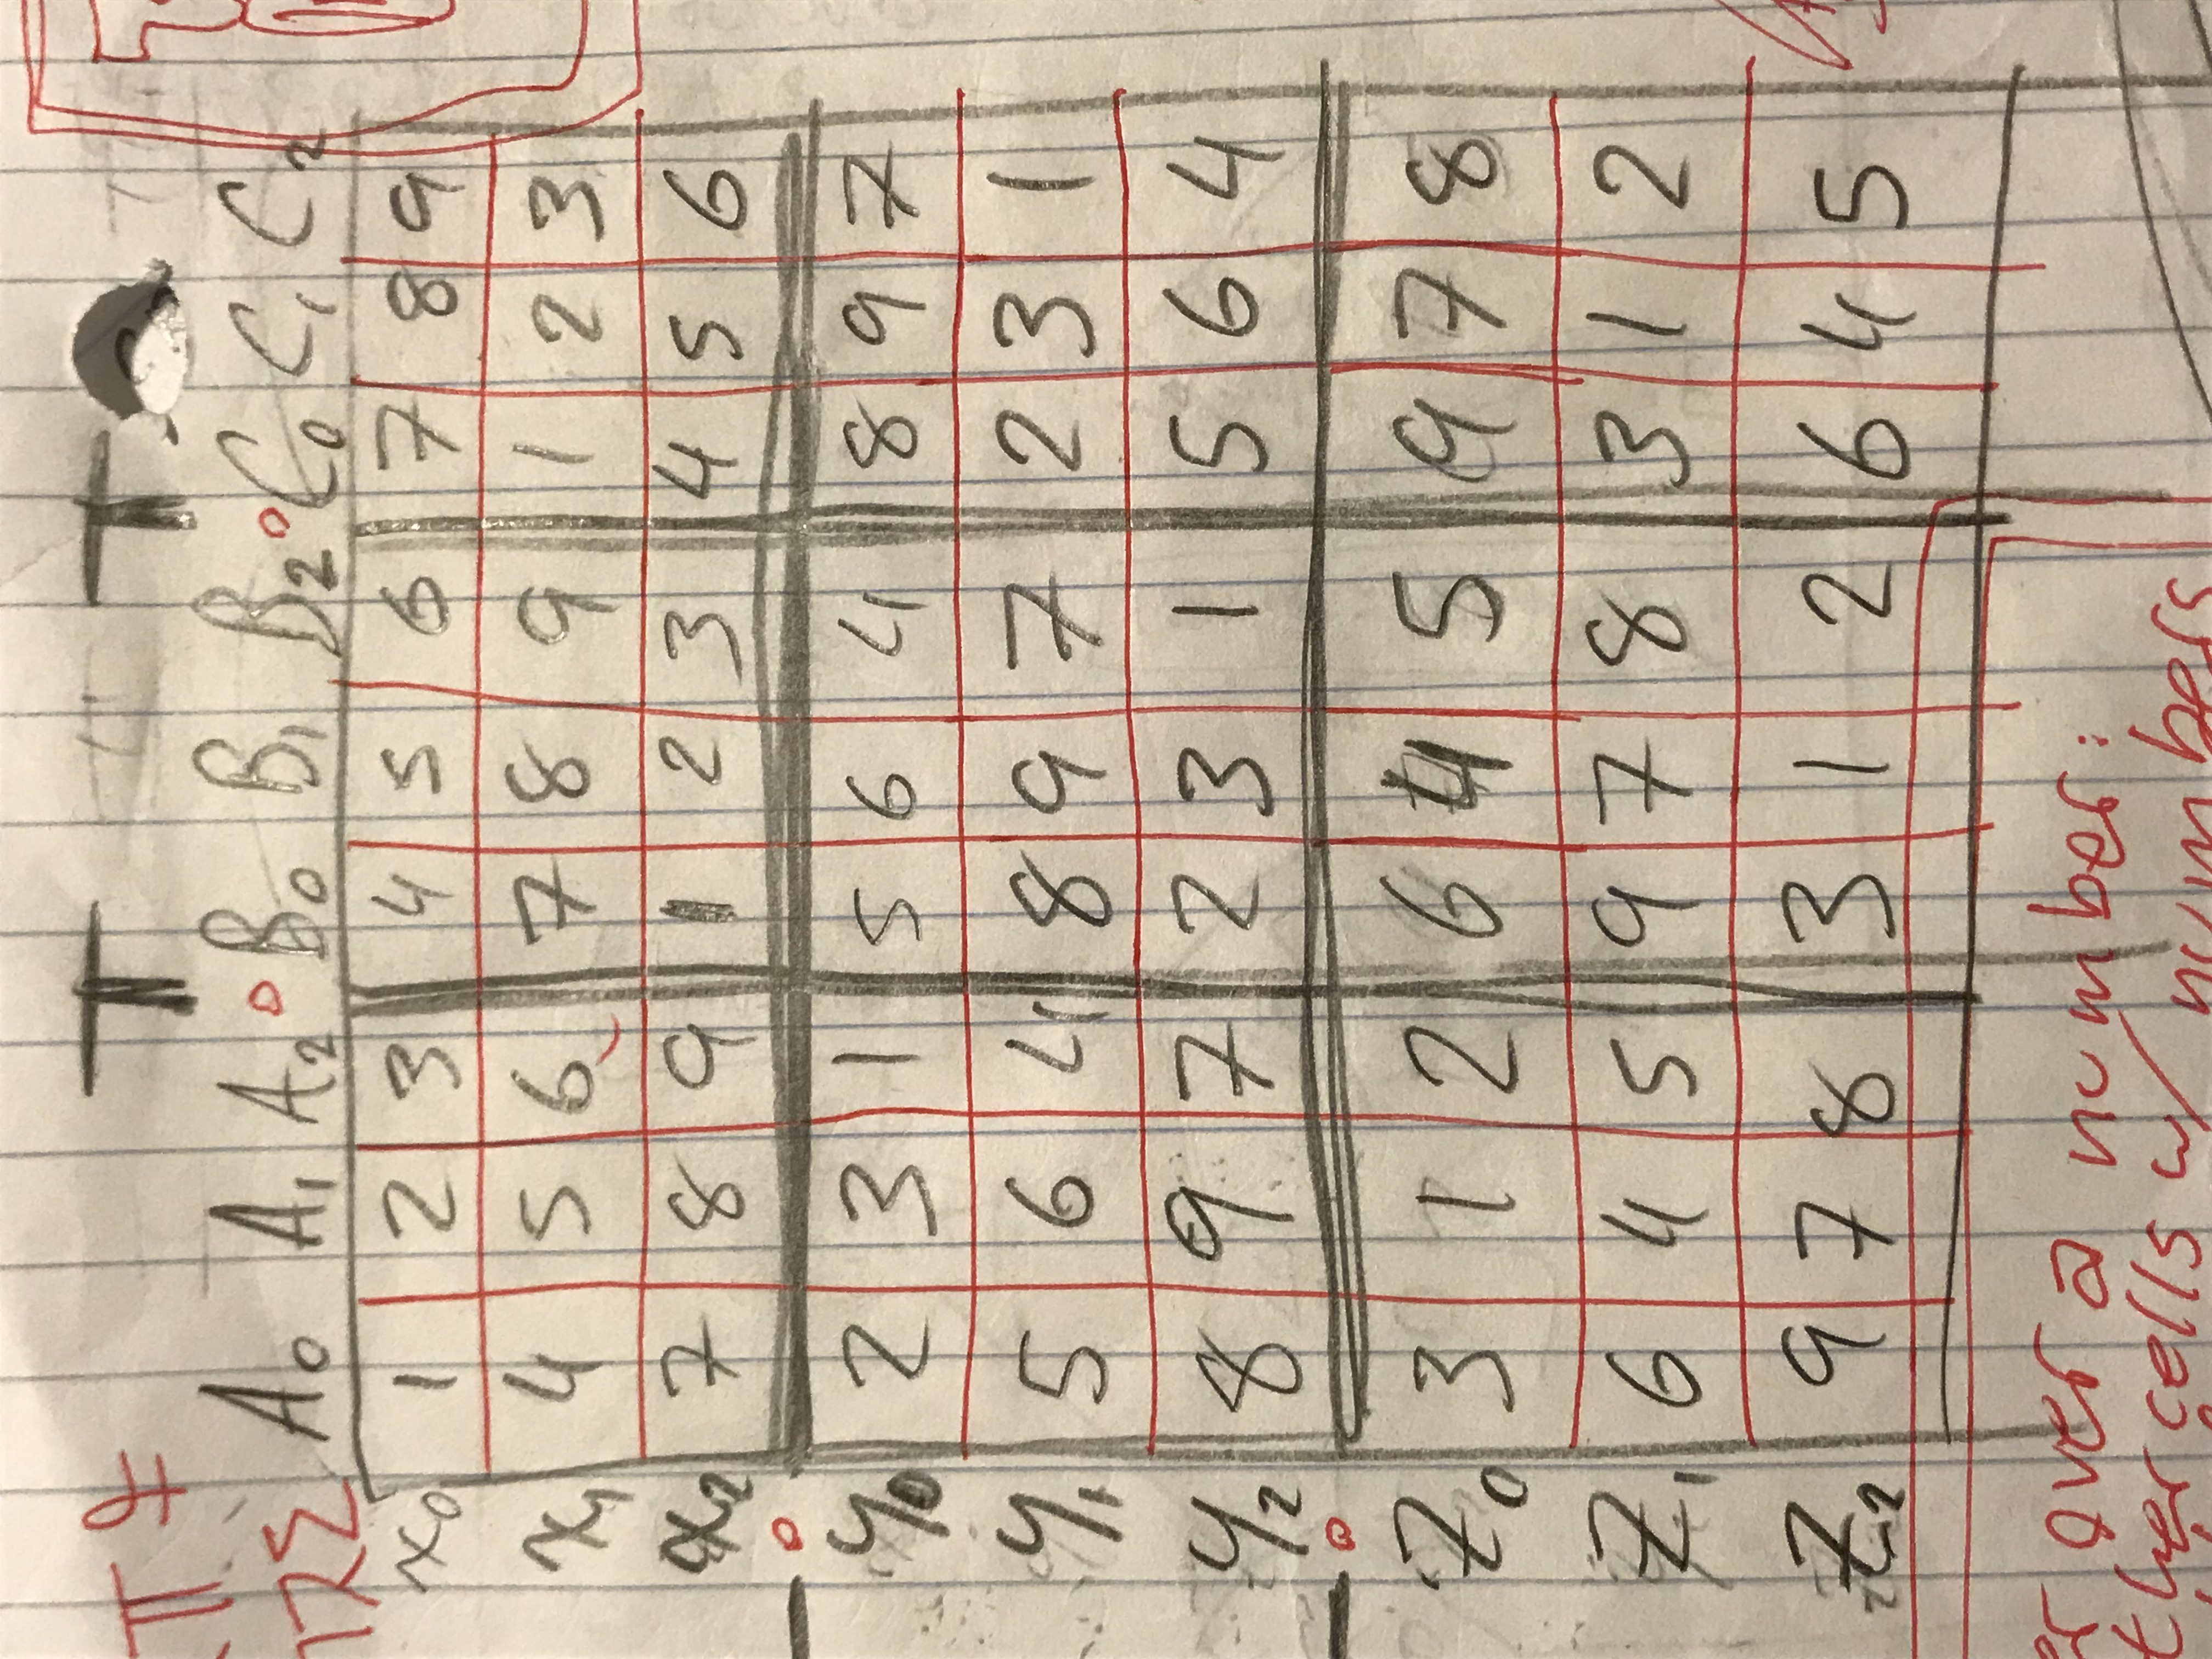 A₀ A₁ A₂ B₀ B₁ B₂ C₀ C₁ C₂
x₀ 1 2 3 4 5 6 7 8 9
x₁ 4 5 6 7 8 9 1 2 3
x₂ 7 8 9 1 2 3 4 5 6
y₀ 2 3 1 5 6 4 8 9 7
y₁ 5 6 4 8 9 7 2 3 1
y₂ 8 9 7 2 3 1 5 6 4
z₀ 3 1 2 6 4 5 9 7 8
z₁ 6 4 5 9 7 8 3 1 2
z₂ 9 7 8 3 1 2 6 4 5
over a number:
cells w/ numbers